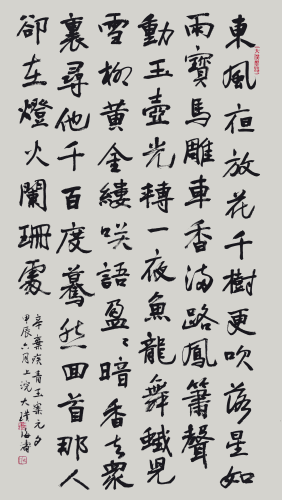 東風夜放花千樹更吹落星如
雨寶馬雕車香滿路鳳簫聲
動玉壺光轉一夜魚龍舞蛾兒
雪柳黃金縷咲語盈〻暗香去衆
裏尋他千百度驀然回首那人
卻在燈火闌珊處
辛棄疾青玉案元夕
甲辰六月上浣大